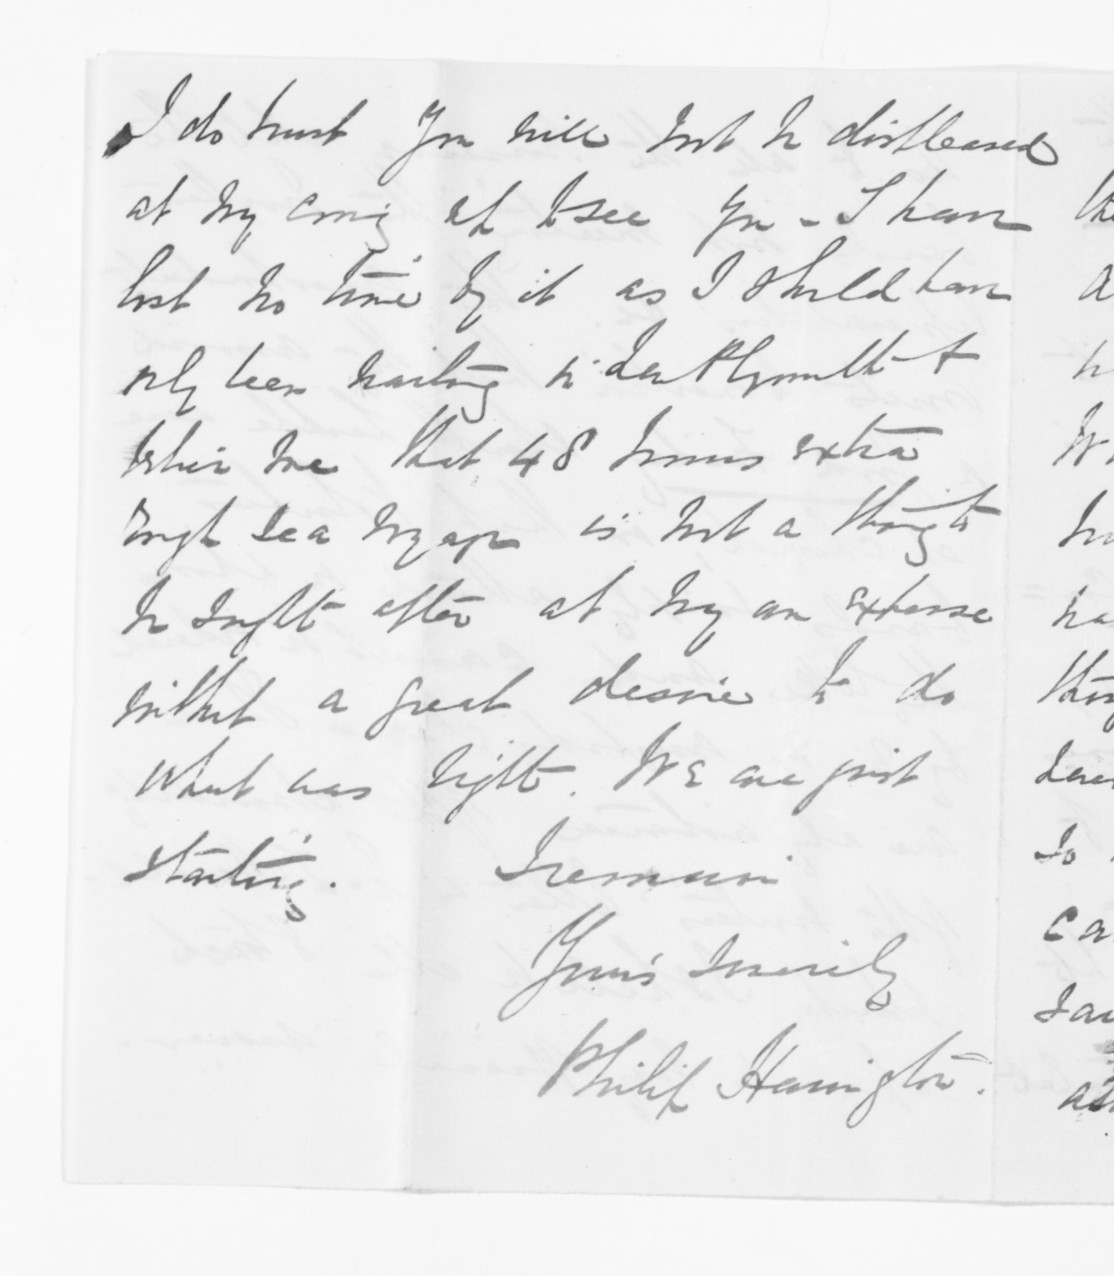 I do trust you will not be displeased
at my coming up to see you - I have
lost no time by it as I should have
only been waiting in New Plymouth &
believe me that 48 hours extra
rough sea voyage is not a thing to
be sought after at my own expense
without a great desire to do
what was right. We are just
starting.
I remain
Yours sincerely
Philip Harington.